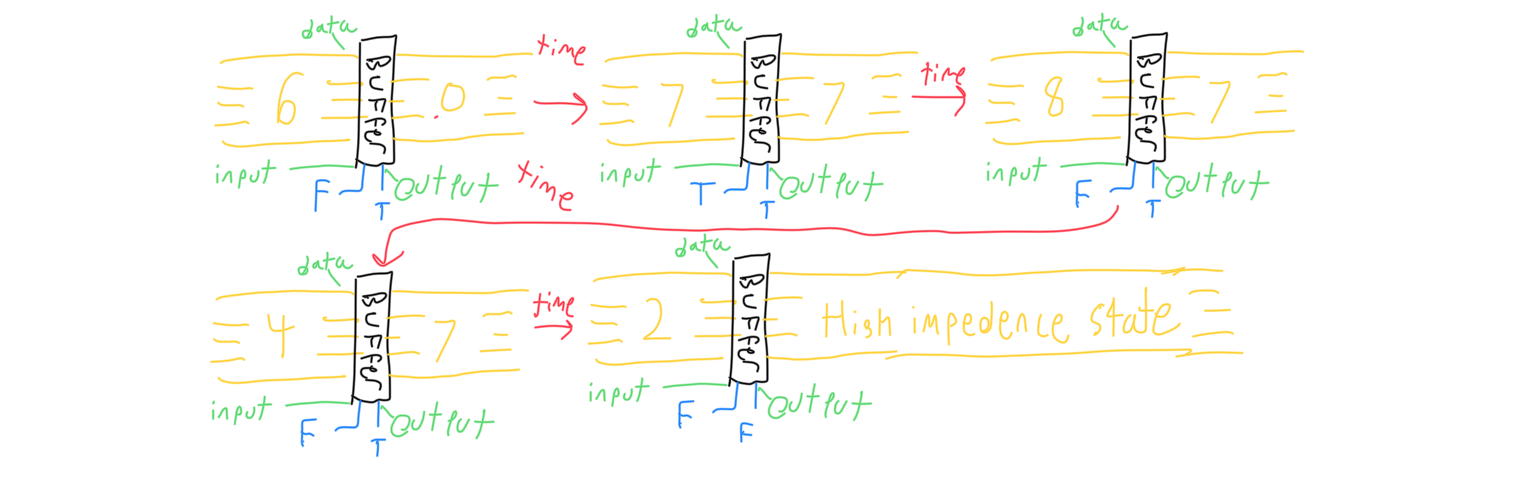 data
BUFFer
6
.0
input
F
T
output
time
data
BUFFer
7
7
input
T
T
output
time
data
BUFFer
8
7
input
F
T
output
time
data
BUFFer
4
7
input
F
T
output
time
data
BUFFer
2
High impedence state
input
F
F
output